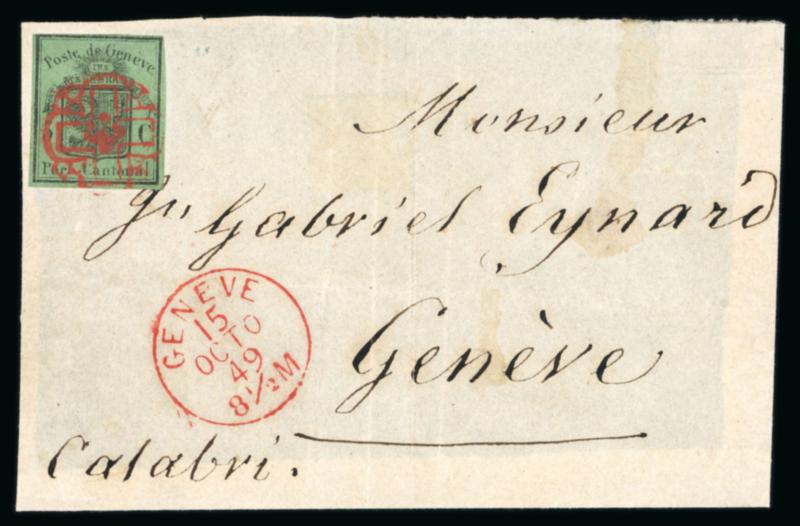 Poste de Genève
5 C
Port Cantonal
Monsieur
Jn Gabriel Eynard
Genève
GENEVE
15
OCTO
49
8 1/2 M
Calabri.